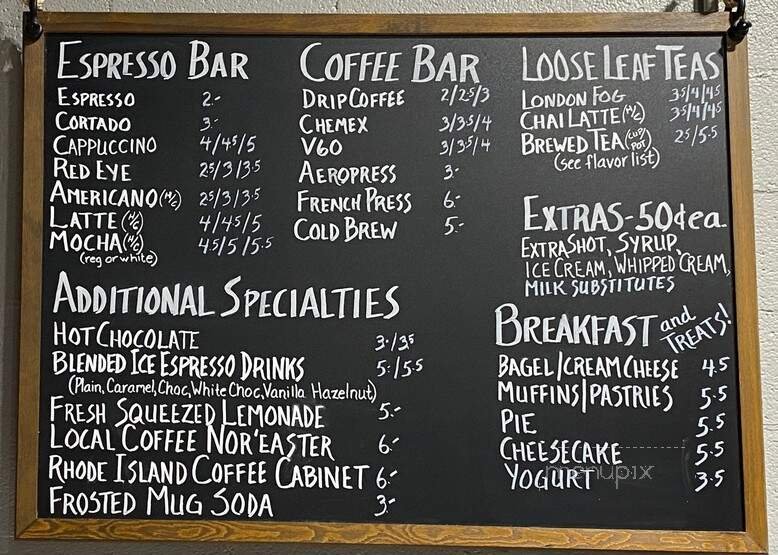 ESPRESSO BAR
ESPRESSO 2.-
CORTADO 3.-
CAPPUCCINO 4/4.5/5
RED EYE 2.5/3/3.5
AMERICANO (H/C) 2.5/3/3.5
LATTE (H/C) 4/4.5/5
MOCHA (H/C) 4.5/5/5.5
(reg or white)
COFFEE BAR
DRIP COFFEE 2/2.5/3
CHEMEX 3/3.5/4
V60 3/3.5/4
AEROPRESS 3.-
FRENCH PRESS 6.-
COLD BREW 5.-
LOOSE LEAF TEAS
LONDON FOG 3.5/4/4.5
CHAI LATTE (H/C) 3.5/4/4.5
BREWED TEA (CUP/POT) 2.5/5.5
(see flavor list)
EXTRAS-50¢ea.
EXTRA SHOT, SYRUP,
ICE CREAM, WHIPPED CREAM,
MILK SUBSTITUTES
ADDITIONAL SPECIALTIES
HOT CHOCOLATE 3.-/3.5
BLENDED ICE ESPRESSO DRINKS 5.-/5.5
(Plain, Caramel, Choc, White Choc, Vanilla Hazelnut)
FRESH SQUEEZED LEMONADE 5.-
LOCAL COFFEE NOR'EASTER 6.-
RHODE ISLAND COFFEE CABINET 6.-
FROSTED MUG SODA 3.-
BREAKFAST and TREATS!
BAGEL/CREAM CHEESE 4.5
MUFFINS/PASTRIES 5.5
PIE 5.5
CHEESECAKE 5.5
YOGURT 3.5
menupix